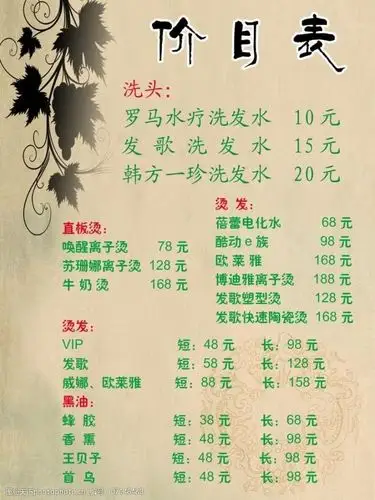 价目表
洗头：
罗马水疗洗发水 10 元
发歌洗发水 15 元
韩方一珍洗发水 20 元
直板烫：
唤醒离子烫 78 元
苏珊娜离子烫 128 元
牛奶烫 168 元
烫发：
蓓蕾电化水 68 元
酷动e族 98 元
欧莱雅 168 元
博迪雅离子烫 188 元
发歌塑型烫 128 元
发歌快速陶瓷烫 168 元
烫发：
VIP 短：48 元 长：98 元
发歌 短：58 元 长：128 元
威娜、欧莱雅 短：88 元 长：158 元
黑油：
蜂胶 短：38 元 长：68 元
香熏 短：48 元 长：98 元
王贝子 短：48 元 长：98 元
首乌 短：48 元 长：98 元